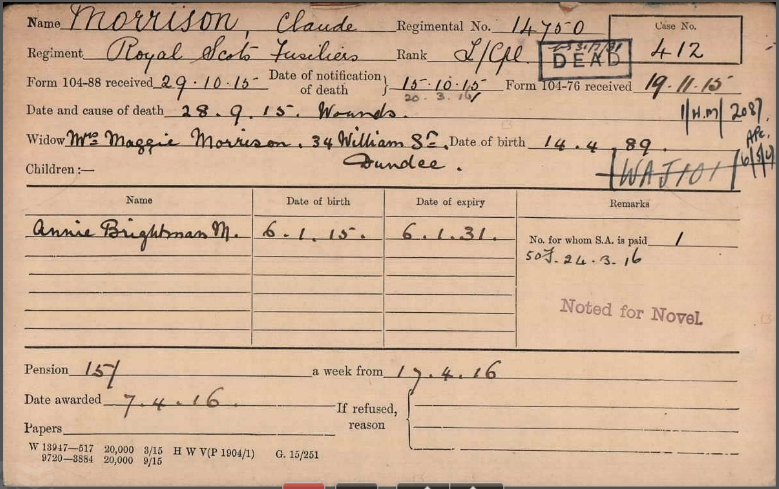 Name Morrison, Claude Regimental No. 14750 Case No.
412
Regiment Royal Scots Fusiliers Rank L/Cpl. DEAD
Form 104-88 received 29.10.15 Date of notification of death } 15.10.15 Form 104-76 received 19.11.15
20.3.16
Date and cause of death 28.9.15. Wounds. 1/H.M/2087
Widow Mrs Maggie Morrison. 34 William St. Date of birth 14.4.89.
Dundee.
Children :— WAJ101
Name Date of birth Date of expiry Remarks
Annie Brightman M. 6.1.15. 6.1.31. No. for whom S.A. is paid 1
24.3.16
Noted for Novel.
Pension 15/ a week from 17.4.16
Date awarded 7.4.16. If refused, reason
Papers
W 13947—517 20,000 3/15 H W V(P 1904/1) G. 15/251
9720—3884 20,000 9/15